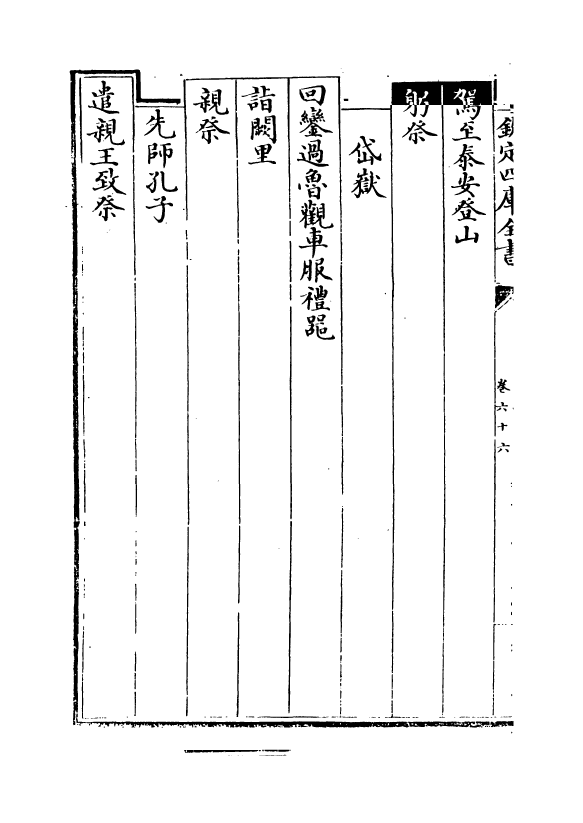 欽定四庫全書
卷六十六
駕至泰安登山
躬祭
岱嶽
回鑾過魯觀車服禮器
詣闕里
親祭
先師孔子
遣親王致祭